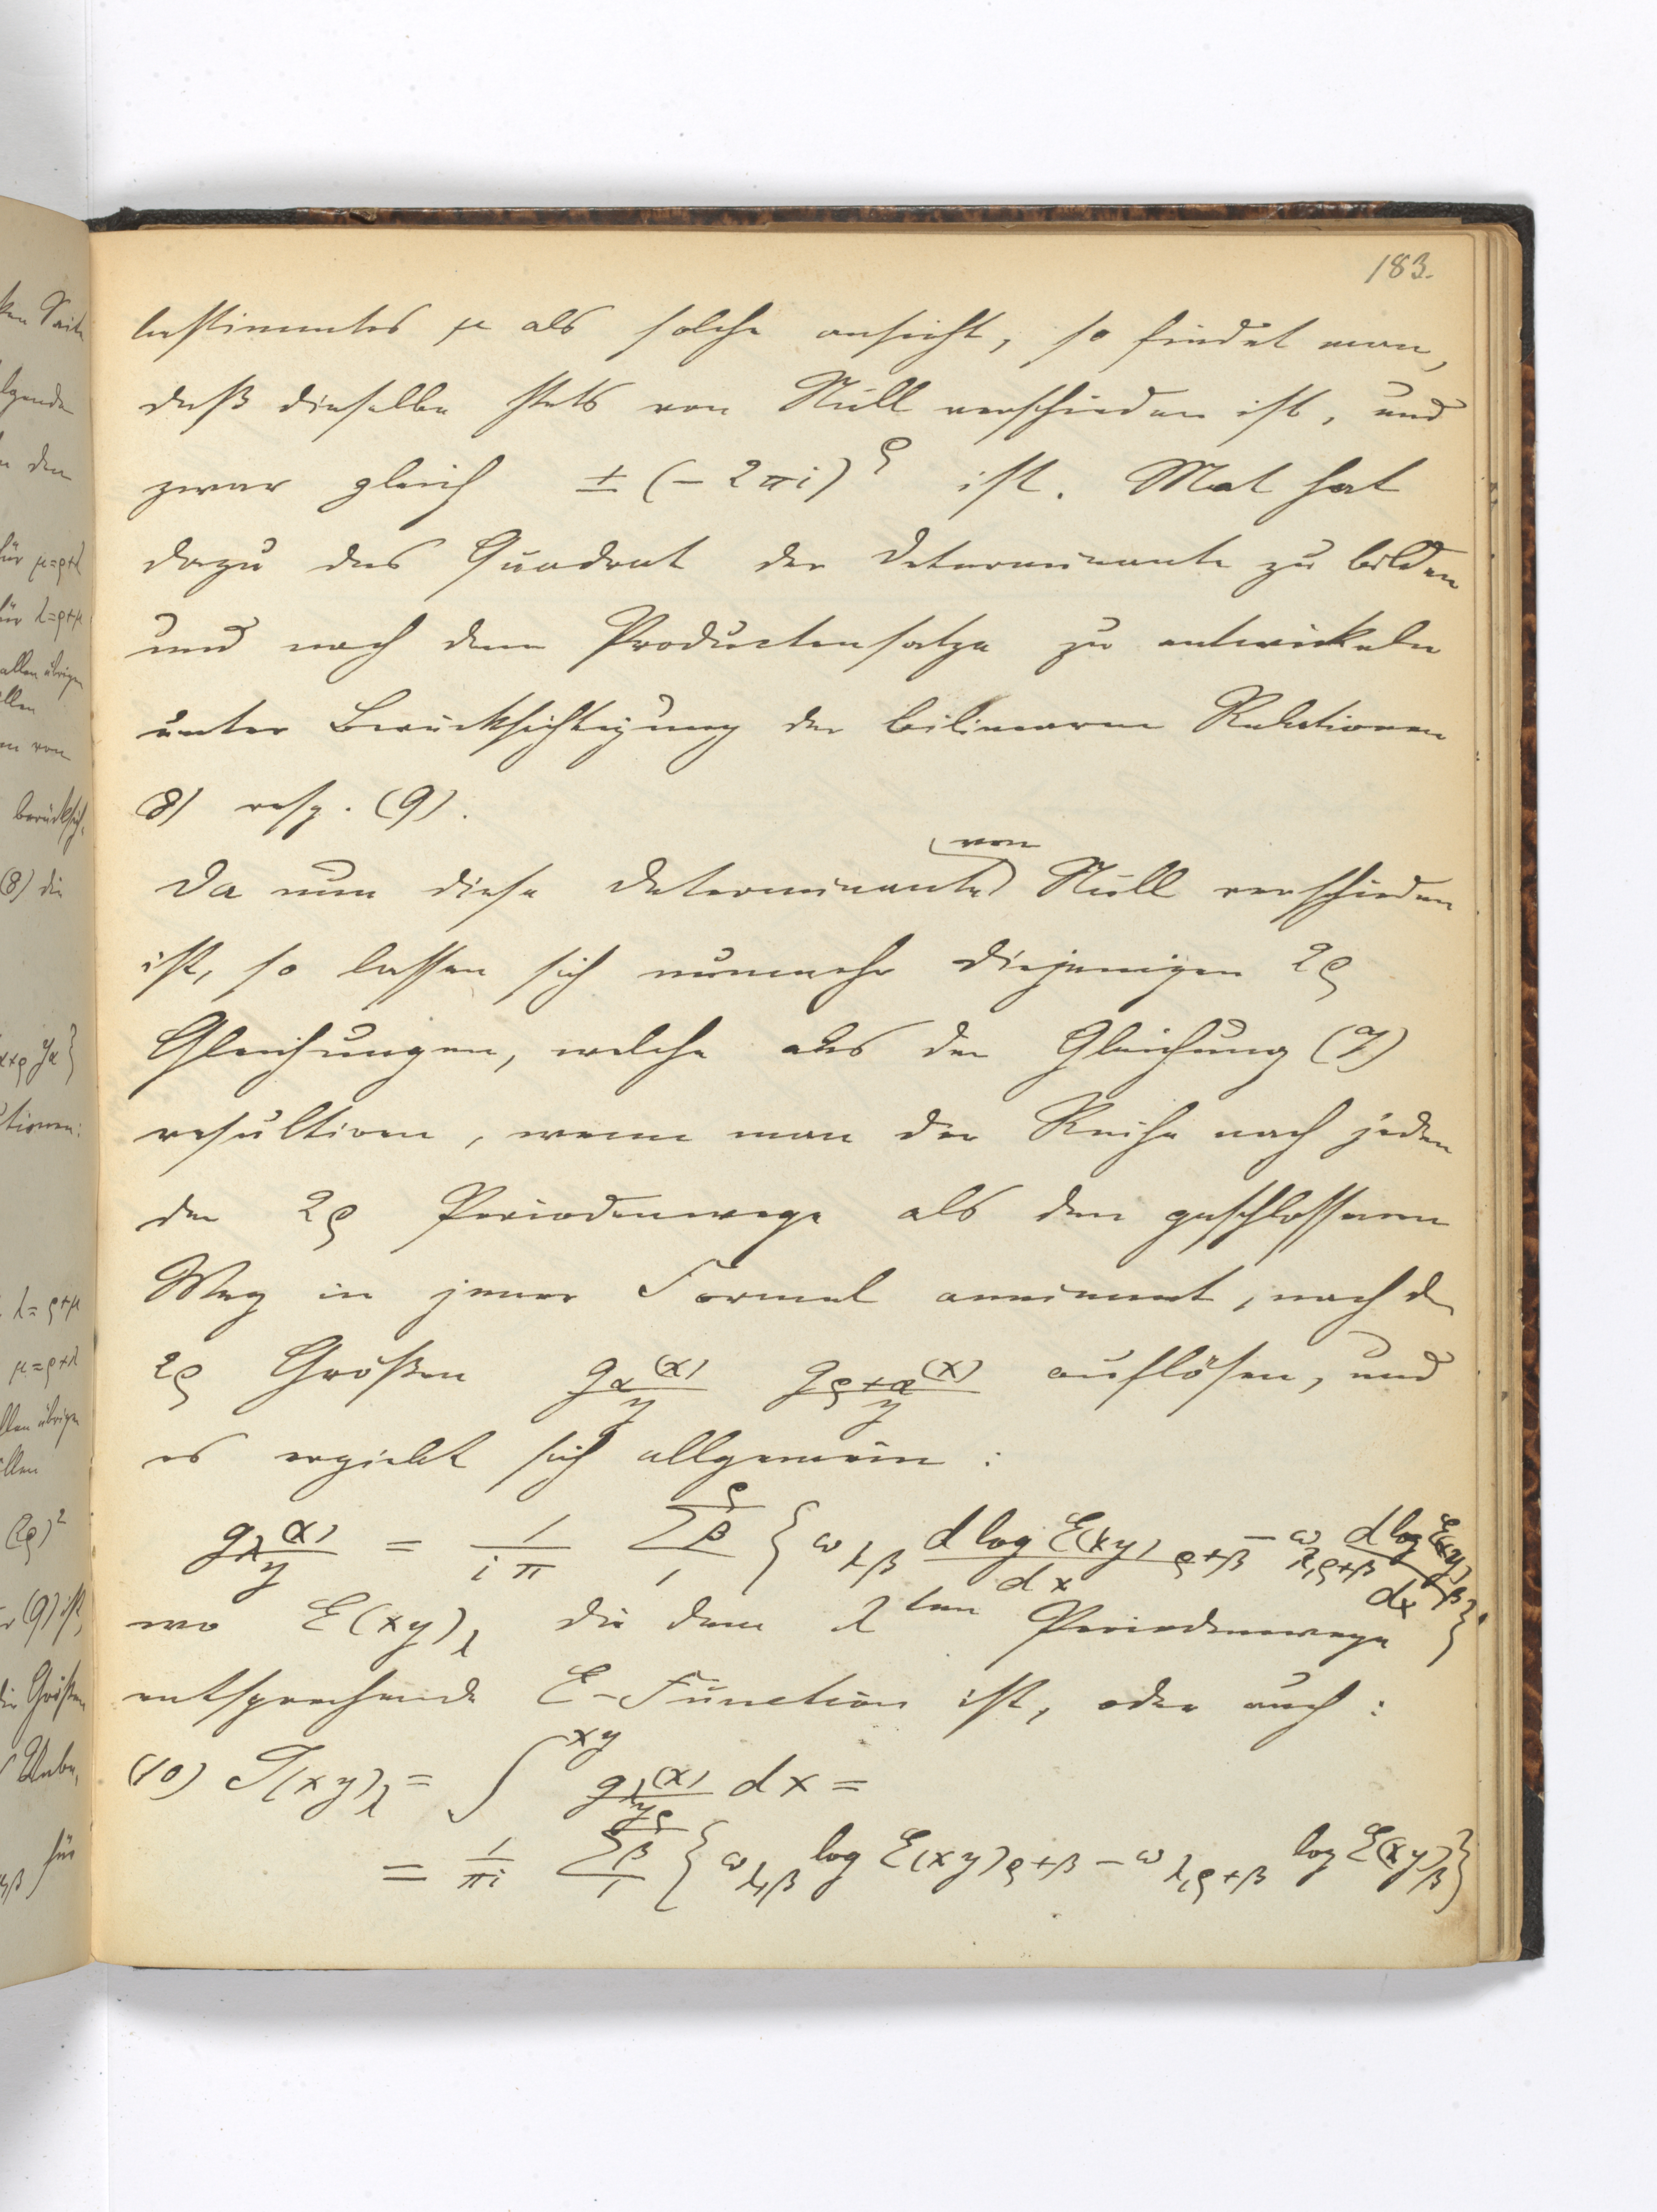 183.
bestimmtes μ als solche ansieht, so findet man,
daß dieselbe stets von Null verschieden ist, und
zwar gleich ± (– 2πi)^ρ ist. Mat hat
dazu das Quadrat der Determinante zu bilden
und nach dem Productensatze zu entwickeln
unter Berücksichtigung der bilinearen Relationen
8) resp. (9).
Da nun diese Determinante von Null verschieden
ist, so lassen sich nunmehr diejenigen 2ρ
Gleichungen, welche aus der Gleichung (7)
resultiren, wenn man der Reihe nach jeden
der 2ρ Periodenwege als den geschlossenen
Weg in jener Formel annimmt, nach d
2ρ Größen g_α(x)/y g_ρ+α(x)/y auflösen, und
es ergiebt sich allgemein:
g_λ(x)/y = 1/iπ Σ_1^ρ β { ω_λβ d log E(xy)_ρ+β/dx – ω_λ,ρ+β d log E(xy)_β/dx }
wo E(xy)_λ die dem λ^ten Periodenwege
entsprechende E-Function ist, oder auch:
(10) J(xy)_λ = ∫^xy g_λ(x)/y dx =
= 1/πi Σ_1^ρ β { ω_λ,β log E(xy)_ρ+β – ω_λ,ρ+β log E(xy)_β }